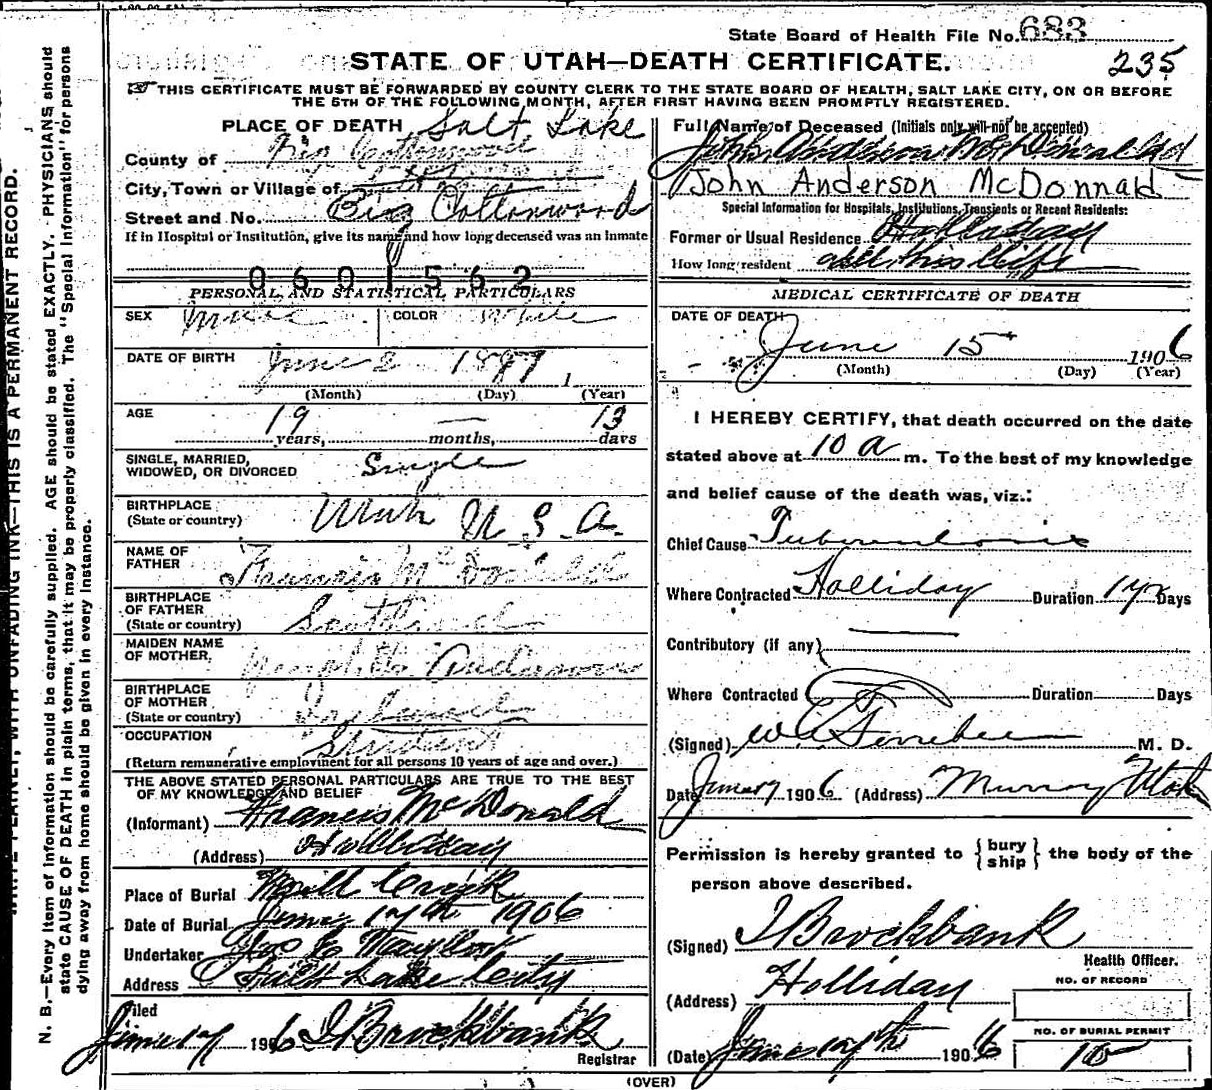 State Board of Health File No. 683
STATE OF UTAH—DEATH CERTIFICATE. 235
THIS CERTIFICATE MUST BE FORWARDED BY COUNTY CLERK TO THE STATE BOARD OF HEALTH, SALT LAKE CITY, ON OR BEFORE
THE 5TH OF THE FOLLOWING MONTH, AFTER FIRST HAVING BEEN PROMPTLY REGISTERED.
N. B.—Every item of information should be carefully supplied. AGE should be stated EXACTLY. PHYSICIANS should
state CAUSE OF DEATH in plain terms, that it may be properly classified. The "Special Information" for persons
dying away from home should be given in every instance.
WITH UNFADING INK—THIS IS A PERMANENT RECORD.
PLACE OF DEATH Salt Lake
County of Big Cottonwood
City, Town or Village of
Street and No. Big Cottonwood
If in Hospital or Institution, give its name and how long deceased was an inmate
0601562
PERSONAL AND STATISTICAL PARTICULARS
SEX Male COLOR White
DATE OF BIRTH June 2 1887 1
(Month) (Day) (Year)
AGE 19 years, — months, 13 days
SINGLE, MARRIED,
WIDOWED, OR DIVORCED Single
BIRTHPLACE
(State or country) Utah U S. A.
NAME OF
FATHER Francis McDonald
BIRTHPLACE
OF FATHER
(State or country) Scotland
MAIDEN NAME
OF MOTHER. Anderson
BIRTHPLACE
OF MOTHER
(State or country) Ireland
OCCUPATION Student
(Return remunerative employment for all persons 10 years of age and over.)
THE ABOVE STATED PERSONAL PARTICULARS ARE TRUE TO THE BEST
OF MY KNOWLEDGE AND BELIEF
(Informant) Francis McDonald
(Address) Holliday
Place of Burial Mill Creek
Date of Burial June 17th 1906
Undertaker
Address Salt Lake City
Filed
June 17 1906 Brockbank
Registrar
Full Name of Deceased (Initials only will not be accepted)
John Anderson McDonald
John Anderson McDonnald
Special Information for Hospitals, Institutions, Transients or Recent Residents:
Former or Usual Residence Holladay
How long resident all his life
MEDICAL CERTIFICATE OF DEATH
DATE OF DEATH
June 15 1906
(Month) (Day) (Year)
I HEREBY CERTIFY, that death occurred on the date
stated above at 10 a m. To the best of my knowledge
and belief cause of the death was, viz.:
Chief Cause Tuberculosis
Where Contracted Holliday Duration 1 yr Days
Contributory (if any) —
Where Contracted Duration Days
(Signed) M. D.
Date June 17 1906 (Address) Murray Utah
Permission is hereby granted to { bury ship } the body of the
person above described.
(Signed) Brockbank
Health Officer.
(Address) Holliday
NO. OF RECORD
(Date) June 17th 1906
NO. OF BURIAL PERMIT
(OVER)